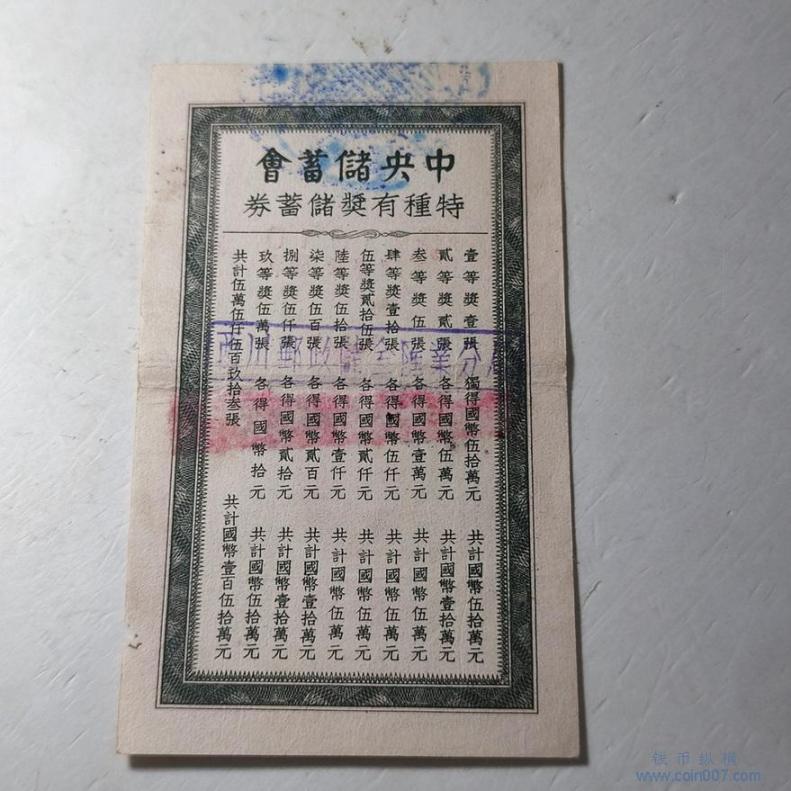 中央儲蓄會
特種有奬儲蓄券
壹等奬壹張 獨得國幣伍拾萬元 共計國幣伍拾萬元
貳等奬貳張 各得國幣伍萬元 共計國幣壹拾萬元
叁等奬伍張 各得國幣壹萬元 共計國幣伍萬元
肆等奬壹拾張 各得國幣伍仟元 共計國幣伍萬元
伍等奬貳拾伍張 各得國幣貳仟元 共計國幣伍萬元
陸等奬伍拾張 各得國幣壹仟元 共計國幣伍萬元
柒等奬伍百張 各得國幣貳百元 共計國幣壹拾萬元
捌等奬伍仟張 各得國幣貳拾元 共計國幣壹拾萬元
玖等奬伍萬張 各得國幣拾元 共計國幣伍拾萬元
共計伍萬伍仟伍百玖拾叁張 共計國幣壹百伍拾萬元
川郵政儲金匯業分局
钱币纵横
www.coin007.com